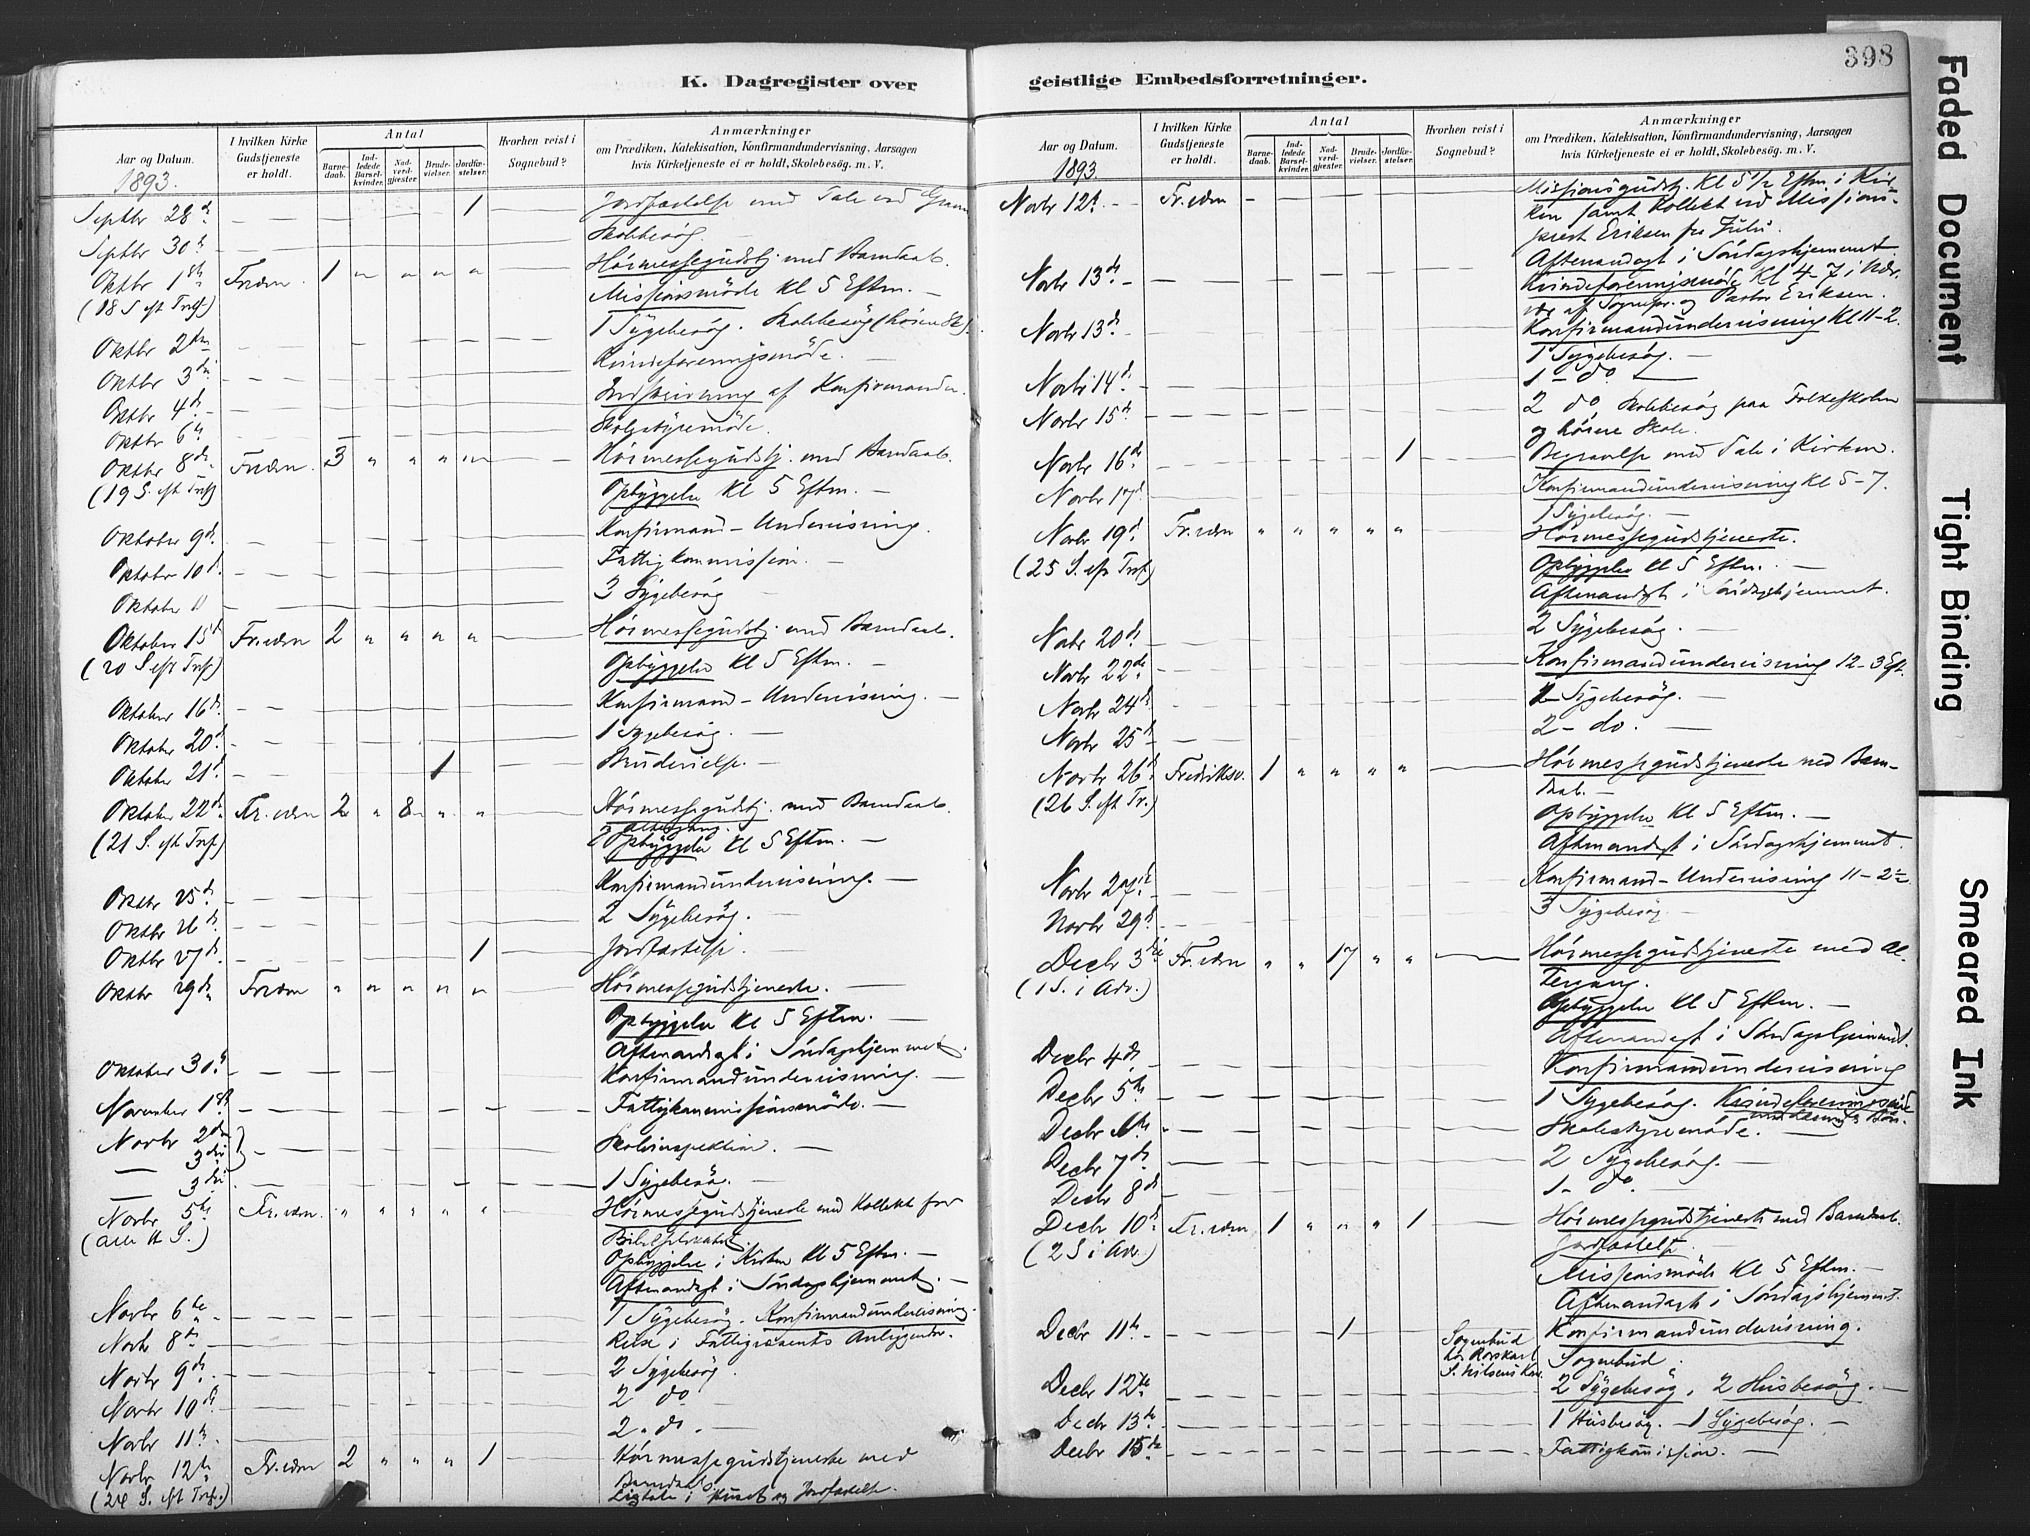 398
K. Dagregister over
geistlige Embedsforretninger.
Aar og Datum.
I hvilken Kirke Gudstjeneste er holdt.
Antal
Barne-daab.
Ind-ledede Barsel-kvinder.
Nad-verd-gjester.
Brude-vielser.
Jordfæ-stelser.
Hvorhen reist i Sognebud?
Anmærkninger
om Prædiken, Katekisation, Konfirmandundervisning, Aarsagen
hvis Kirketjeneste ei er holdt, Skolebesøg. m. V.
1893.
Septbr 28de 1 Jordfæstelse med Tale ved Graven
Septbr 30te Skolebesøg.
Oktbr 1ste Fr.værn 1 " " " " Høimessegudstj. med Barndaab.
(18 S. eft Tref.) Missionsmöde Kl 5 Eftm. —
Oktbr 2den 1 Sygebesøg. Skolebesøg (höiere Sk).
Oktbr 3die Kvindeforeningsmöde. —
Oktbr 4de Indskrivning af Konfirmander.
Oktbr 6te Skolestyremöde.
Oktbr 8de Fr.værn. 3 " " " " Høimessegudstj. med Barndaab.
(19 S. eft Tref) Opbyggelse Kl 5 Eftm. —
Oktober 9de Konfirmand-Undervisning.
Oktober 10de Fattigkommission. —
Oktober 11 3 Sygebesøg —
Oktober 15de Fr.værn 2 " " " " Høimessegudstj. med Barndaab.
(20 S. eft Tref) Opbyggelse Kl 5 Eftm. —
Oktober 16de Konfirmand-Undervisning. —
Oktober 20de 1 Sygebesøg. —
Oktober 21de 1 Brudevielse. —
Oktober 22de Fr.værn 2 " 8 " " Høimessegudstj. med Barndaab
og Altergang.
(21 S. eft Tref) Opbyggelse Kl 5 Eftm. —
Oktbr 25de Konfirmandundervisning. —
Oktbr 26de 2 Sygebesøg. —
Oktbr 27de 1 Jordfæstelse. —
Oktbr 29de Fr.værn " " " " " Høimessegudstjeneste. —
Opbyggelse Kl 5 Eftm. —
Aftenandagt i Söndagshjemmet.
Oktober 30te Konfirmandundervisning. —
November 1ste Fattigkommissionsmöde. —
Novbr 2den
— 3die Skoleinspektion. —
— 3die 1 Sygebesøg. —
Novbr 5te Fr.værn. " " " " " Høimessegudstjeneste med Kollekt for
Bibelselskabet
(Alle H. S.) Opbyggelse i Kirken Kl 5 Eftm. —
Aftenandagt i Söndagshjemmet. —
Novbr 6te 1 Sygebesøg. Konfirmandundervisning.
Novbr 8de Reise i Fattigvæsents Anliggender.
Novbr 9de 2 Sygebesøg.
Novbr 10de 2 do
Novbr 11te 2 - do. —
Novbr 12te Fr.værn 2 " " " 1 Høimessegudstjeneste med
Barndaab.
(24 S. eft Tref.) Ligtale i Huset og Jordfæstelse.
Aar og Datum.
I hvilken Kirke Gudstjeneste er holdt.
Antal
Barne-daab.
Ind-ledede Barsel-kvinder.
Nad-verd-gjester.
Brude-vielser.
Jordfæ-stelser.
Hvorhen reist i Sognebud?
Anmærkninger
om Prædiken, Katekisation, Konfirmandundervisning, Aarsagen
hvis Kirketjeneste ei er holdt, Skolebesög. m. V.
1893
Novbr 12te — Fr.værn Missionsgudstj. Kl 5 1/2 Eftm. i Kir-
ken samt Kollekt ved Missions-
prest Eriksen fra Zulu.
Aftenandagt i Söndagshjemmet.
Novbr 13de — Kvindeforeningsmöde Kl 4-7 i Nær-
vær af Sognepr. og Pastor Eriksen.
Novbr 13de Konfirmandundervisning Kl 11-2.
1 Sygebesøg. —
Novbr 14de 1 - do. —
Novbr 15de 2 do Skolebesøg paa Folkeskolen
og höiere Skole.
Novbr 16de 1 Begravelse med Tale i Kirken.
Novbr 17de Konfirmandundervisning Kl 5-7.
1 Sygebesøg. —
Novbr 19de Fr.værn " " " " " Høimessegudstjeneste.
(25 S. eft Tref) Opbyggelse Kl 5 Eftm. —
Aftenandagt i Söndagshjemmet.
Novbr 20de 2 Sygebesøg. —
Novbr 22de Konfirmandundervisning 12-3 Eft.
Novbr 24de Sygebesøg. —
Novbr 25de 2 - do. —
Novbr 26de Fredriksv. 1 " " " " Høimessegudstjeneste med Barn-
daab. —
(26 S. eft Tr.) Opbyggelse Kl 5 Eftm. —
Aftenandagt i Söndagshjemmet.
Novbr 27de Konfirmand-Undervisning 11-2
Novbr 29de 3 Sygebesøg —
Decbr 3die Fr.værn " " 17 " " Høimessegudstjeneste med Al-
tergang.
(1 S. i Adv.) Opbyggelse Kl 5 Eftm. —
Aftenandagt i Söndagshjemmet.
Decbr 4de Konfirmandundervisning
Decbr 5te 1 Sygebesøg. Kvindeforeningsmöde
Decbr 6te Skolestyremöde. —
Decbr 7de 2 Sygebesøg. —
Decbr 8de 1 - do.
Decbr 10de Fr.værn 1 " " " 1 Høimessegudstjeneste med Barndaab.
Jordfæstelse —
(2 S i Adv.) Missionsmöde Kl 5 Eftm. —
Aftenandagt i Söndagshjemmet.
Decbr 11te 1 Konfirmandundervisning.
Sognebud
hos
S. Nilsens
Sognebud.
Decbr 12te 2 Sygebesøg. 2 Husbesøg. —
Decbr 13de 1 Husbesøg. — 1 Sygebesøg. —
Decbr 15de Fattigkommission. —
Faded Document
Tight Binding
Smeared Ink